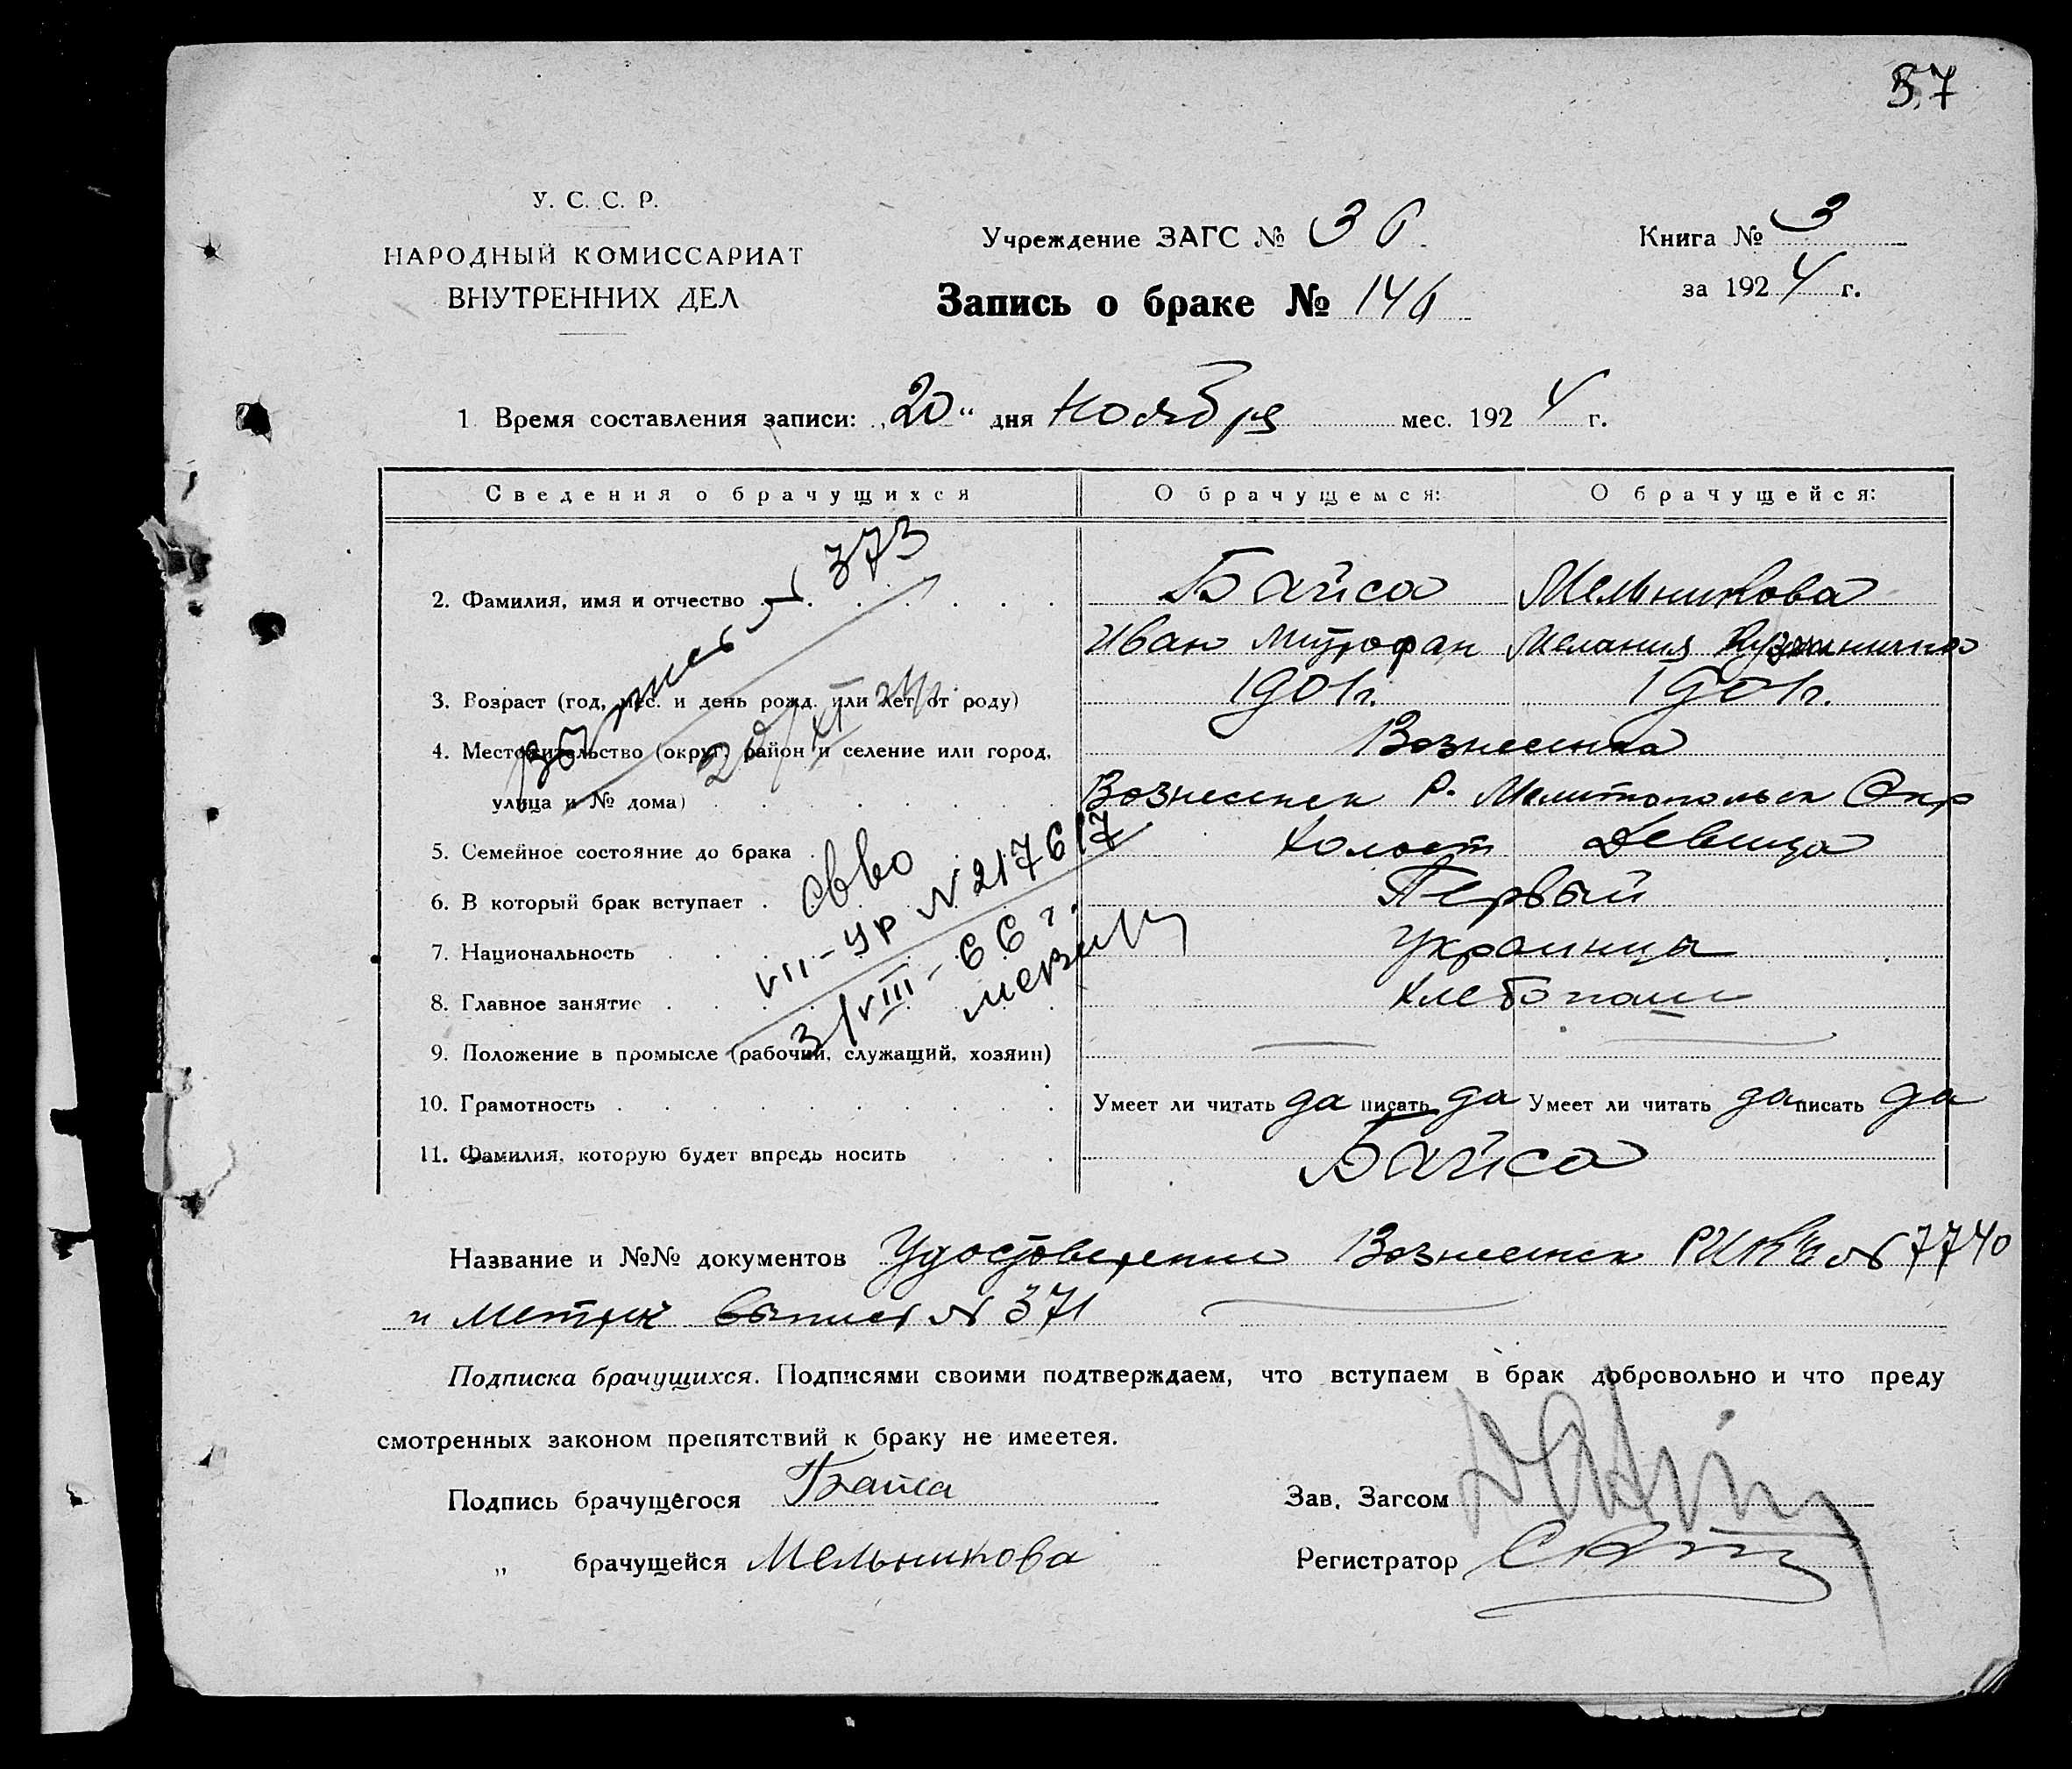 57
У. С. С. Р.
НАРОДНЫЙ КОМИССАРИАТ
ВНУТРЕННИХ ДЕЛ
Учреждение ЗАГС № 36
Книга № 3
за 1924 г.
Запись о браке № 146
1. Время составления записи: „20“ дня ноября мес. 1924 г.
Сведения о брачущихся О брачущемся: О брачущейся:
373
2. Фамилия, имя и отчество Байса Мельникова
Иван Митрофан Мелания
3. Возраст (год, мес. и день рожд. или лет от роду) 1901г. 1901г.
4. Местожительство (округ, район и селение или город, Вознесенка
улица и № дома) Вознесенск Р. Мелитопольск Окр
20/XI 24г
5. Семейное состояние до брака Холост Девица
6. В который брак вступает Первый
7. Национальность Украинцы
8. Главное занятие Хлебопаш
9. Положение в промысле (рабочий, служащий, хозяин)
свво
VII-УР N 217617
3/VIII-66 г.
10. Грамотность Умеет ли читать да писать да Умеет ли читать да писать да
11. Фамилия, которую будет впредь носить Байса
Название и №№ документов Удостоверение Вознесенск РИК'а № 7740
и Метрич выпись № 371
Подписка брачущихся. Подписями своими подтверждаем, что вступаем в брак добровольно и что преду
смотренных законом препятствий к браку не имеетея.
Подпись брачущегося Байса
Зав. Загсом
„ брачущейся Мельникова
Регистратор